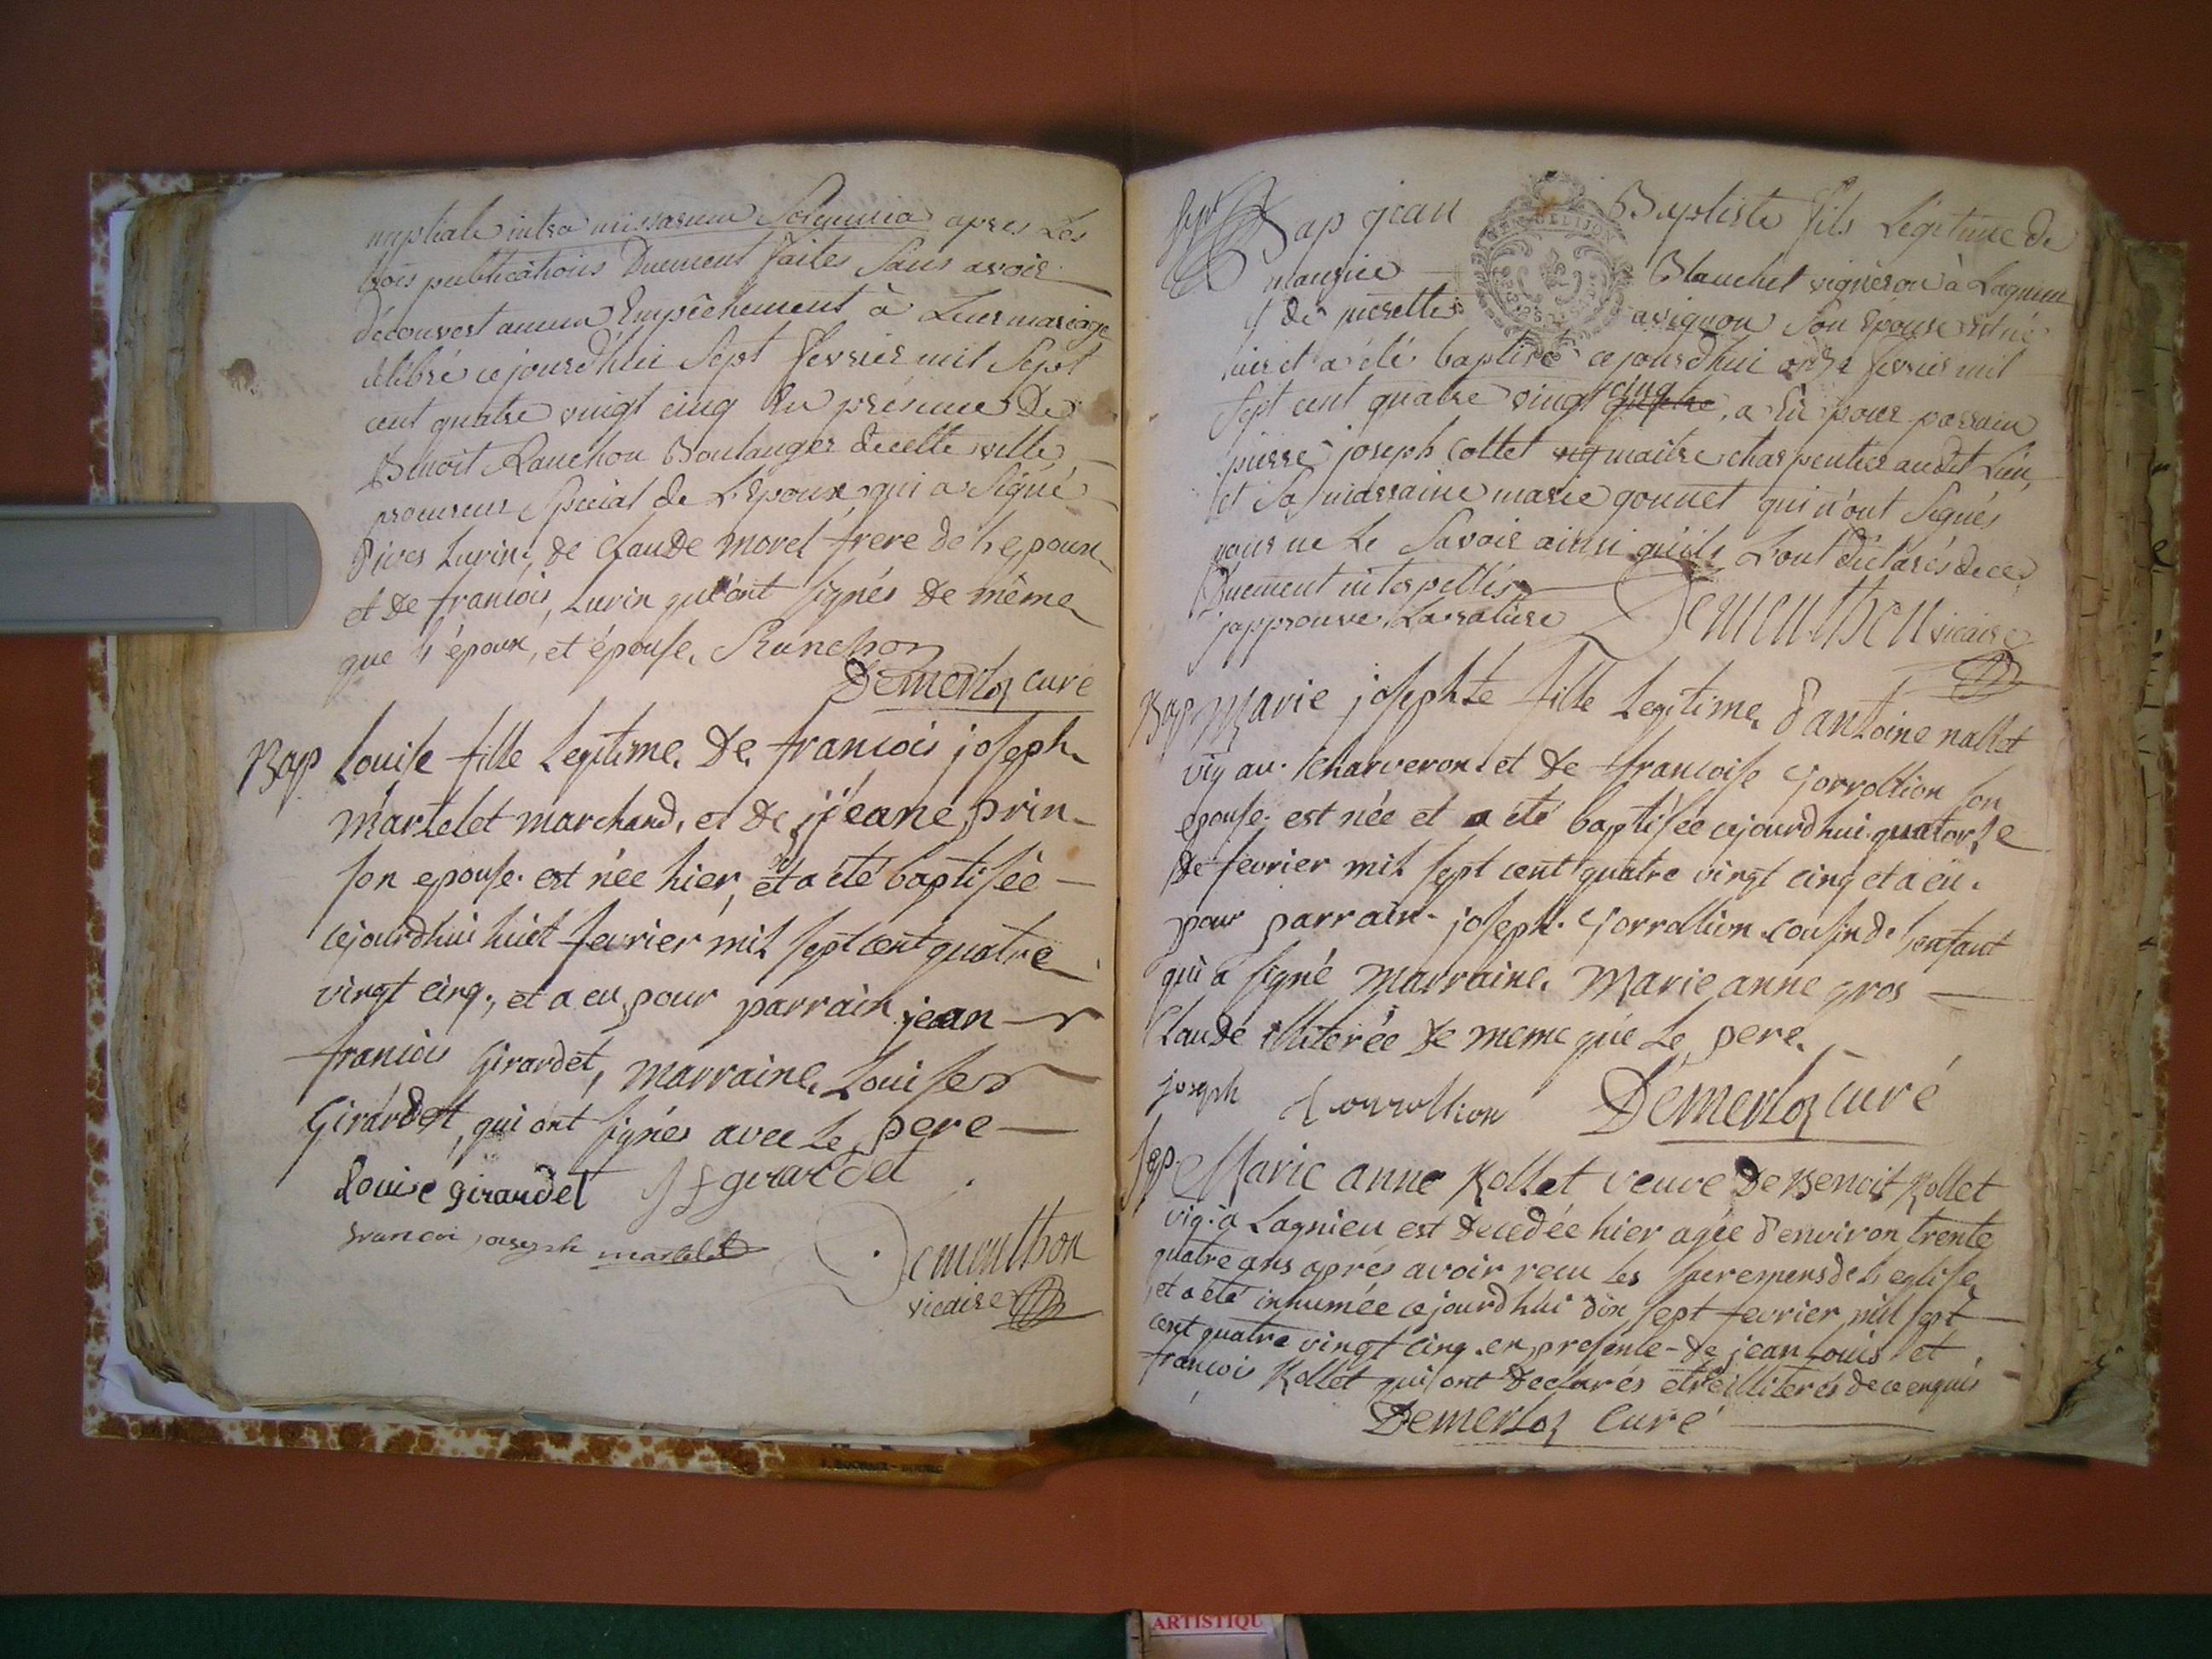 nuptiale intra missarum Solemnia apres Les
trois publications Duement faites Sans avoir
découvert aucun Empêchement à Leur mariage
célébré cejourd'hui Sept fevrier mil Sept
cent quatre vingt cinq En présence De
Benoit Ranchon Boulanger decette ville
procureur Spécial de L'Epoux qui a Signé
d'ives Lurin, de Claude Morel frere de L'epoux
et de francois Lurin qui ont signés de même
que L'époux, et épouse. Ranchon
Demerloz curé
Bap Louise fille Legitime De francois joseph
Martelet marchand, et de jeane prin
son epouse est née hier, et a été baptisée
cejourdhui huit fevrier mil sept cent quatre
vingt cinq, et a eu pour parrain jean
francois Girardet, marraine Louise
Girardet, qui ont signés avec Le pere
Louise girardet J f girardet
francoi joseph martelet
Demonthon
vicaire
Bap jean Baptiste fils Légitime de
maurice Blanchet vigneron à Lagnieu
& de pierrette avignon Son Epouse est né
hier et a été baptisé cejourdhui onze fevrier mil
Sept cent quatre vingt cinq, a Eu pour parrain
pierre joseph Collet vig maitre charpentier audit Lieu,
et Sa marraine marie gonnet qui n'ont Signés
pour ne Le Savoir ainsi qu'ils L'ont déclarés dece
Duement interpellés
j'approuve La rature Demonthon vicaire
Bap Marie josephte fille Legitime d'antoine nallet
vig au charveron et de francoise Gorrollion son
epouse est née et a été baptisée cejourdhui quatorze
de fevrier mil sept cent quatre vingt cinq et a eu
pour parrain joseph Gorrollion cousin de l'enfant
qui a signé Marraine Marie anne gros
Claude illiterée de meme que Le pere.
joseph Gorrollion Demerloz curé
Sep. Marie anne Rollet veuve de Benoit Rollet
vig. a Lagnieu est decedée hier agée d'environ trente
quatre ans après avoir recu les sacremens de L'eglise
et a été inhumée cejourdhui dix sept fevrier mil sept
cent quatre vingt cinq en presence de jean Louis et
francois Rollet qui ont declarés etre illiterés de ce enquis
Demerloz Curé
ARTISTIQU